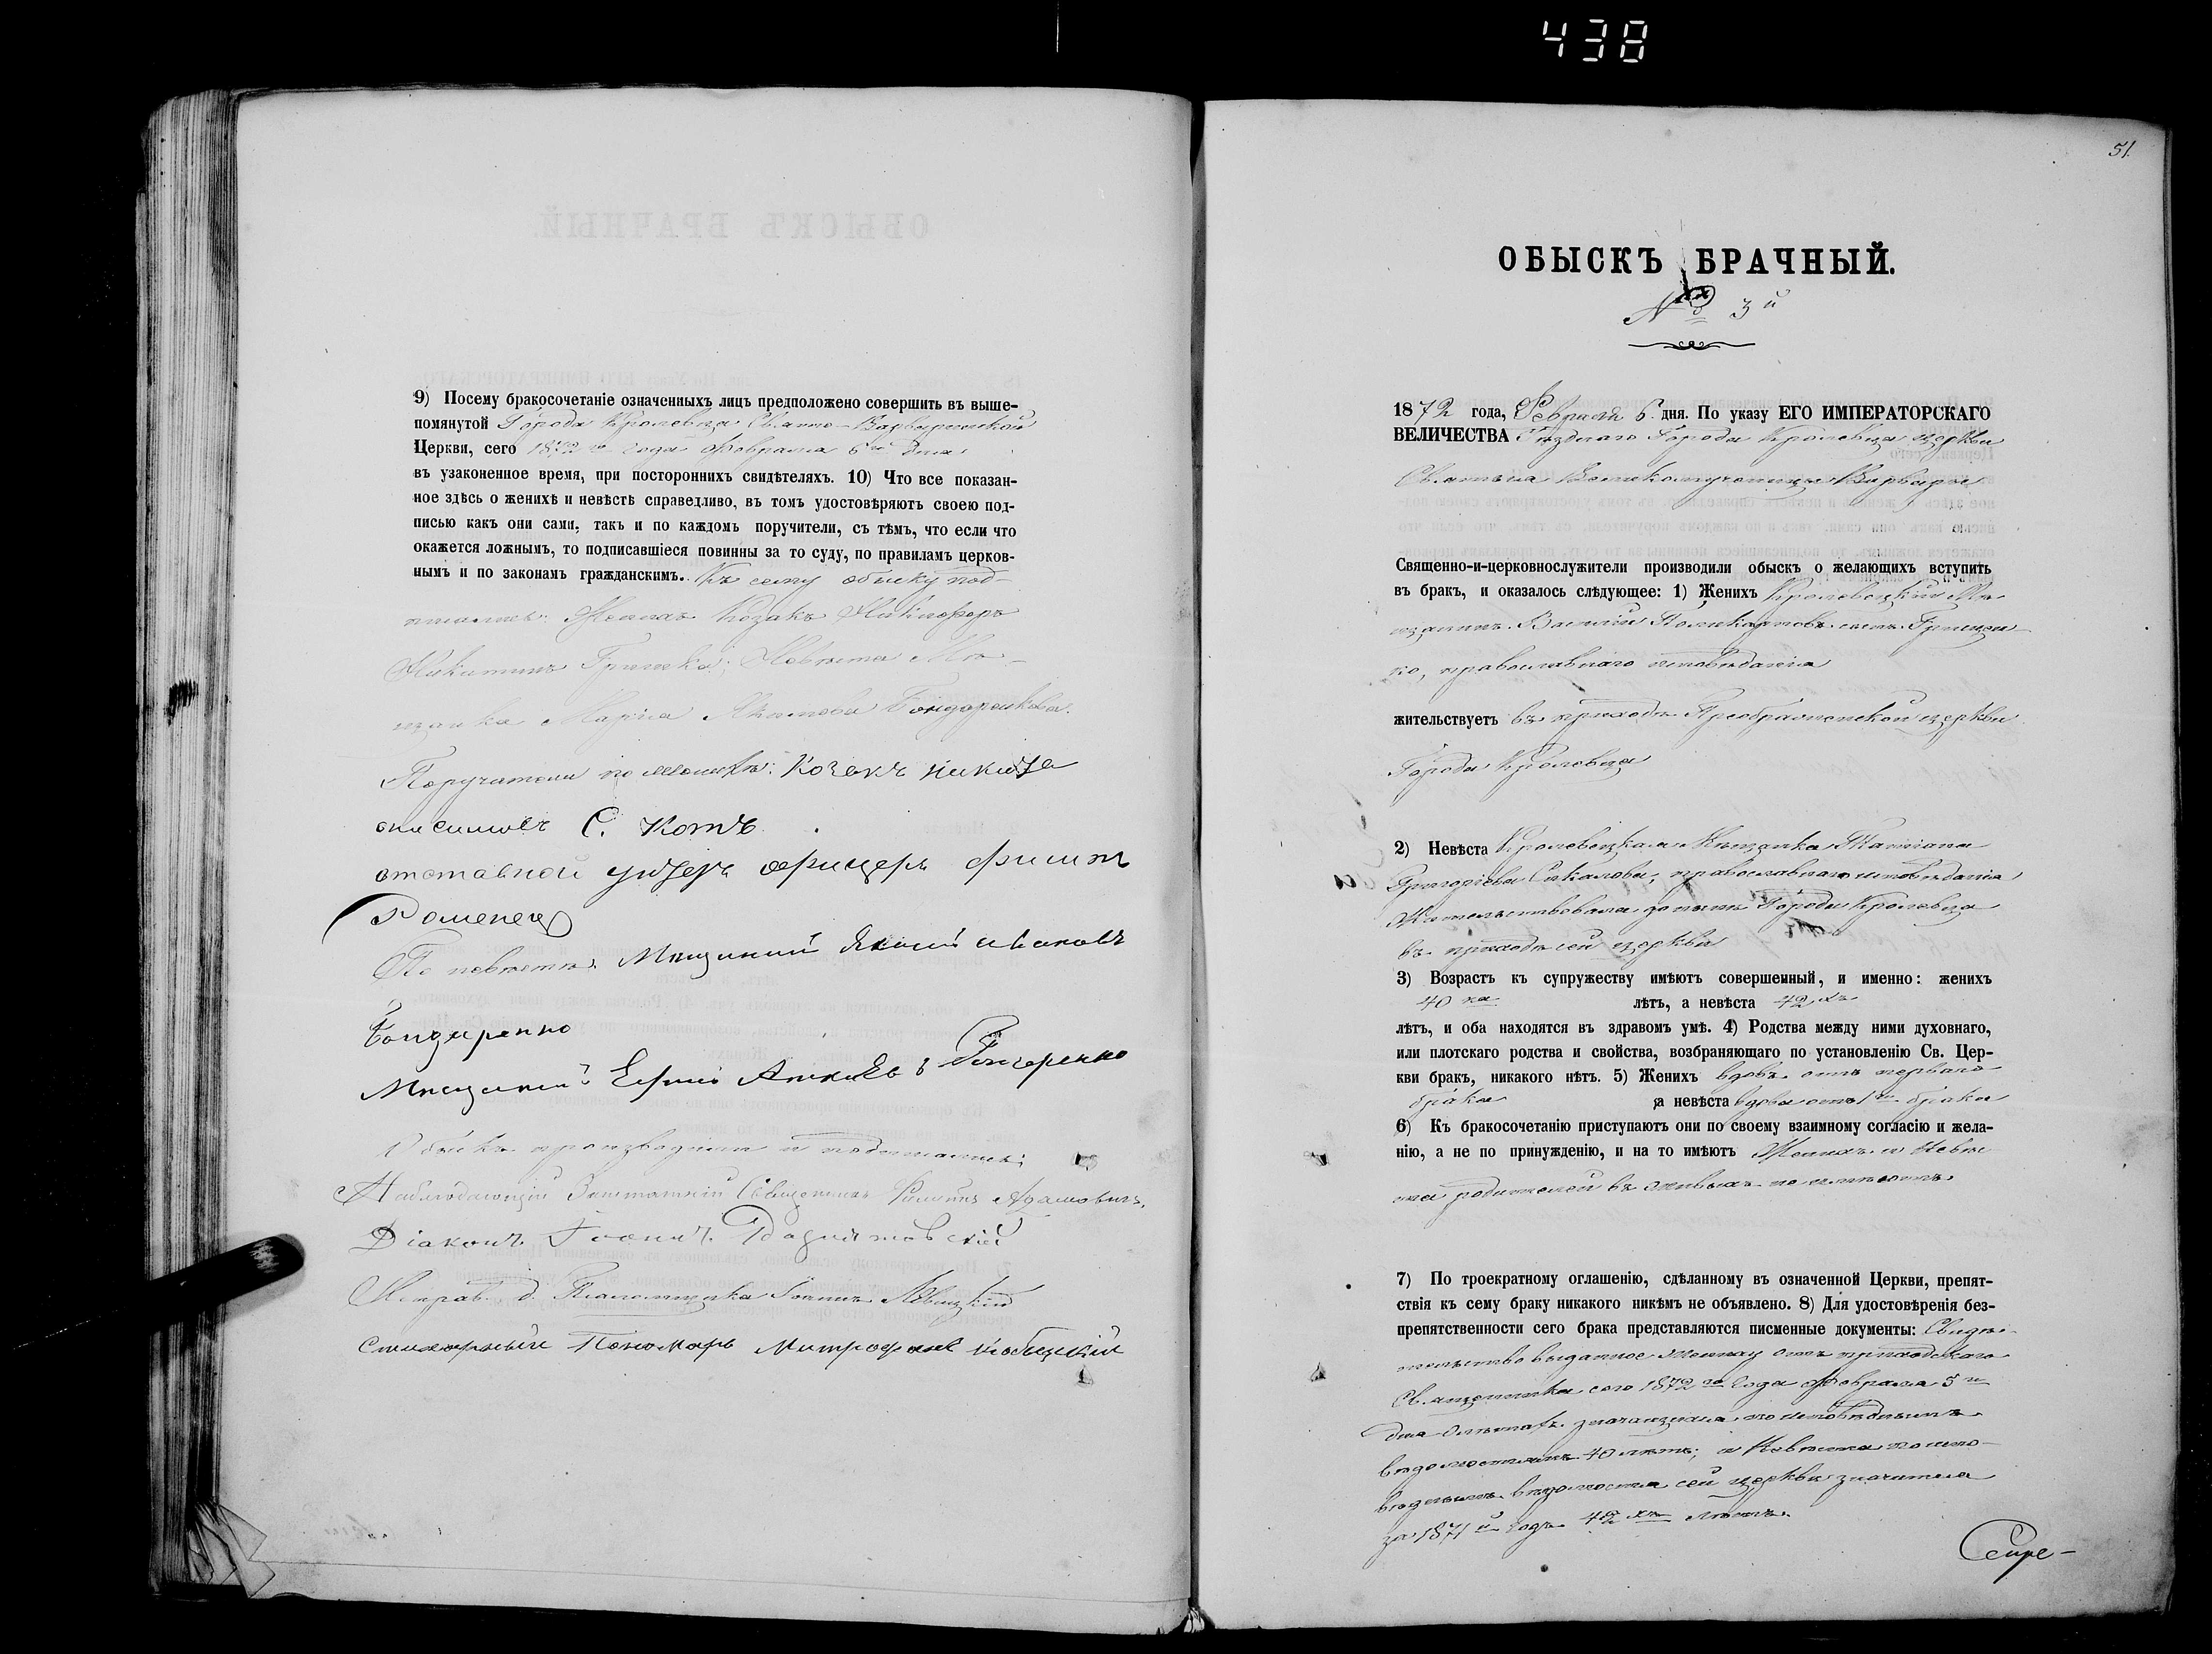 438
9) Посему бракосочетаніе означенныхъ лицъ предположено совершить въ выше-
помянутой Города Кролевца Свято-Варваринской
Церкви, сего 1872 го года Февраля 6 го дня
въ узаконенное время, при постороннихъ свидѣтеляхъ. 10) Что все показан-
ное здѣсь о женихѣ и невѣстѣ справедливо, въ томъ удостовѣряютъ своею под-
писью какъ они сами, такъ и по каждомъ поручители, съ тѣмъ, что если что
окажется ложнымъ, то подписавшіеся повинны за то суду, по правиламъ церков-
нымъ и по законамъ гражданскимъ. Къ сему обыску под-
Женихъ Козакъ Никифоръ
Никитинъ Невѣста Мѣ-
щанка Марія Якимова Бондаренкова.
Поручители по женихѣ: Козакъ никита
С. Котъ
отставной унтеръ офицеръ
Роменец
По невѣстѣ: Мещиний Яким иванов
Бондаренко
Мнщиний Гончаренко
Обыскъ производили и подписались:
Наблюдающій Заштатній Священникъ Адамовичъ,
Діаконъ Іоаннъ
Исправ. д. Псаломщика Іоаннъ Левицкій
Стихарный Пономарь Митрофанъ
51.
ОБЫСКЪ БРАЧНЫЙ.
№ 3 й
1872 года, Февраля 6 дня. По указу ЕГО ИМПЕРАТОРСКАГО
ВЕЛИЧЕСТВА Уѣзднаго Города Кролевца церкви
Святыя Великомученицы Варвары
Священно-и-церковнослужители производили обыскъ о желающихъ вступить
въ бракъ, и оказалось слѣдующее: 1) Женихъ Кролевецкій Мѣ-
щанинъ Василій Поликарповъ сынъ Грищен-
ко, православнаго исповѣданія
жительствуетъ въ приходѣ Преображенской церкви
Города Кролевца
2) Невѣста Кролевецкая Мѣщанка Татіана
Григоріева православнаго исповѣданія
Жительствовала до нынѣ Города Кролевца
въ приходѣ сей церкви
3) Возрастъ къ супружеству имѣютъ совершенный, и именно: женихъ
40 ка лѣтъ, а невѣста 42 хъ
лѣтъ, и оба находятся въ здравомъ умѣ. 4) Родства между ними духовнаго,
или плотскаго родства и свойства, возбраняющаго по установленію Св. Цер-
кви бракъ, никакого нѣтъ. 5) Женихъ вдовъ отъ перваго
брака а невѣста вдова отъ 1 го брака
6) Къ бракосочетанію приступаютъ они по своему взаимному согласію и жела-
нію, а не по принужденію, и на то имѣютъ Женихъ и Невѣс
та родителей въ живыхъ не имѣютъ
7) По троекратному оглашенію, сдѣланному въ означенной Церкви, препят-
ствія къ сему браку никакого никѣмъ не объявлено. 8) Для удостовѣренія без-
препятственности сего брака представляются писменные документы: Свидѣ-
тельство выданное жениху отъ приходскаго
Священника сего 1872 го года Февраля 5 го
дня о лѣтахъ значащихся по исповѣднымъ
вѣдомостямъ 40 лѣтъ; а Невѣста по испо-
вѣднымъ вѣдомостямъ сей церкви значится
за 1871 й годъ 42 хъ лѣтъ.